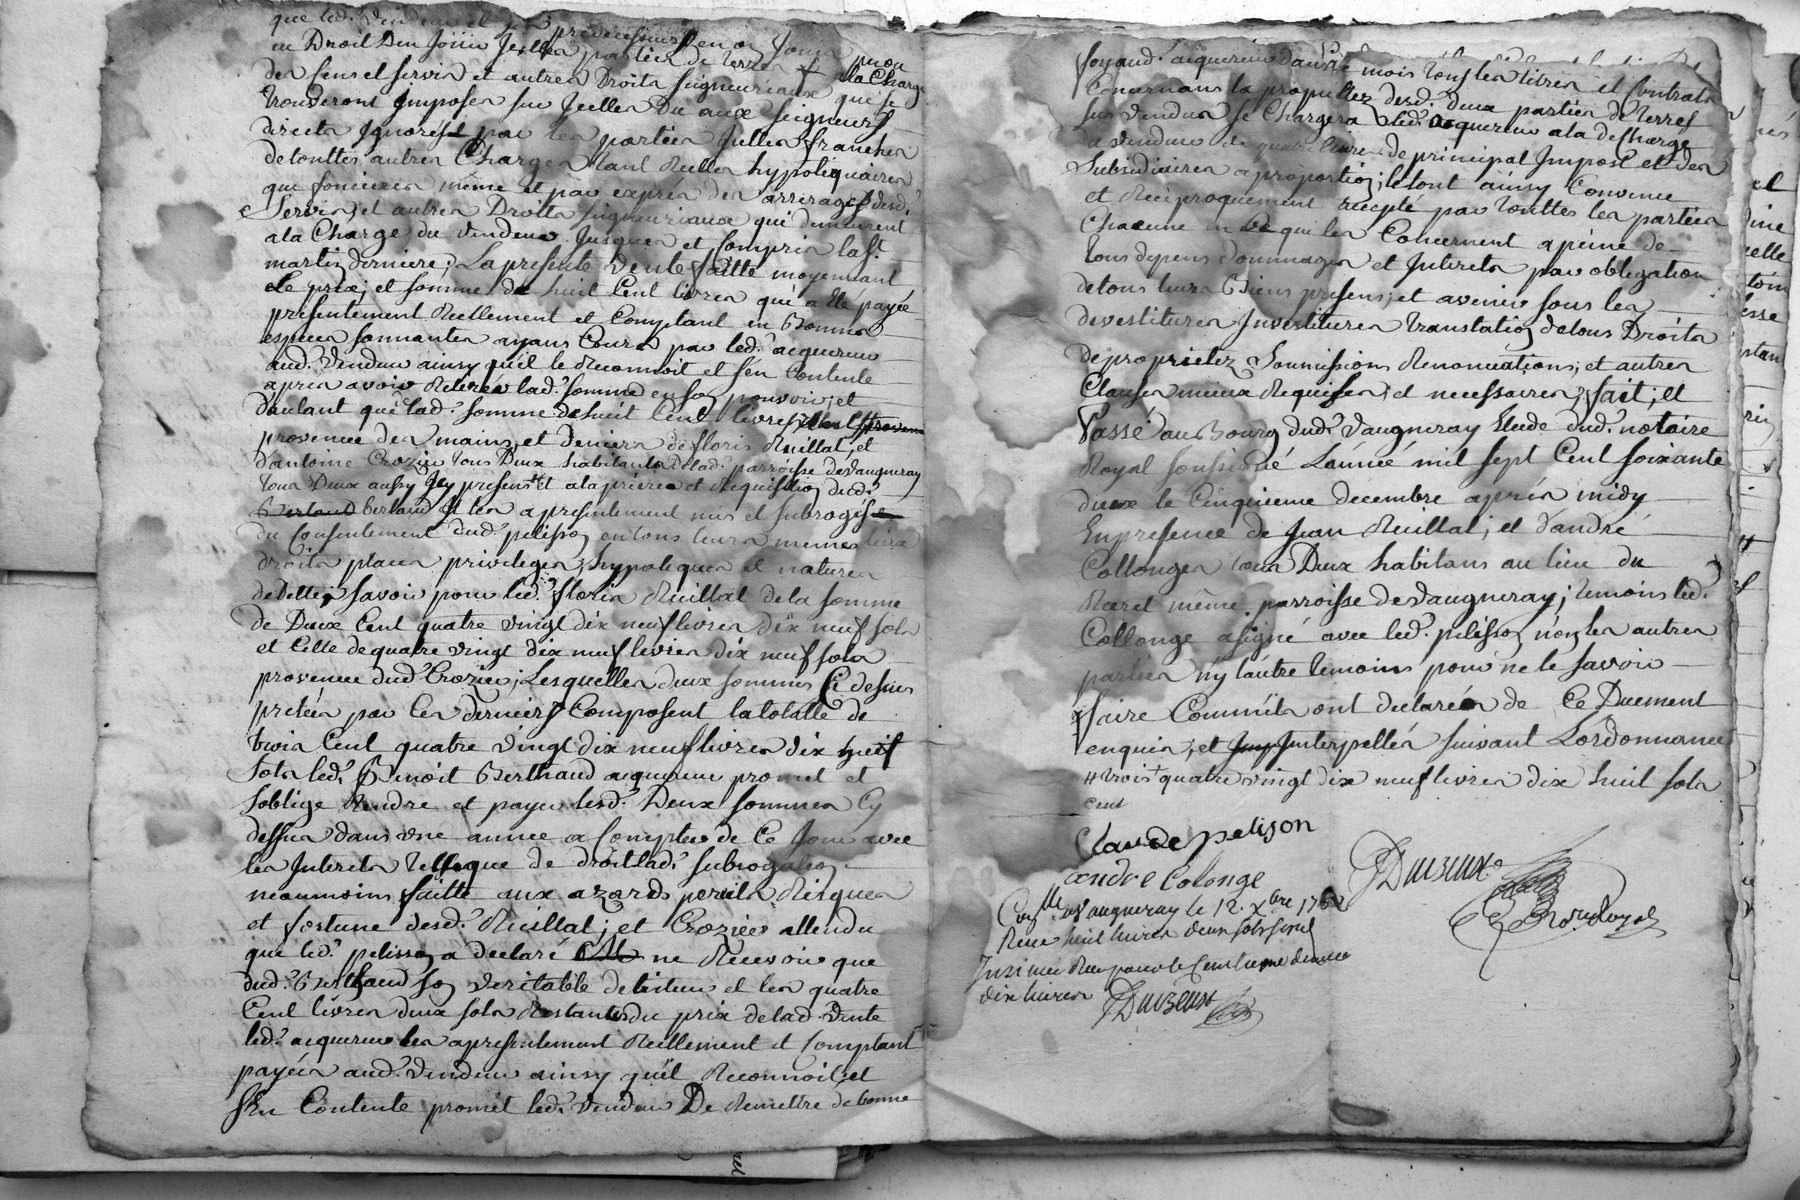 que led. vendeur et ses predecesseurs en ont joui
en Droit Den Jouir Jcelles parties de terres a la Charge
des sens et servis et autres Droits seigneuriaux qui se
trouveront Imposés sur Jcelles Du aux seigneurs
directs Ignorés par les parties Jcelles franches
de touttes autres Charges tant Reelles hypotéquaires
que foncieres même et par exprès des arrerages desd.
Servis et autres Droits seigneuriaux qui demeurent
a la Charge du vendeur Jusques et Compris la st.
martin derniere; La presente vente faitte moyennant
Le prix et somme de huit Cent livres qui a ete payée
presentement Reellement et Comptant en Bonnes
especes sonnantes ayans Cours par led. acquereur
aud. vendeur ainsy qu'il le Reconnoit et s'en Contente
apres avoir Retirée lad. somme en son pouvoir; et
d'autant que lad. somme de huit Cent livres
provenue des mains et deniers de floris Ruillat, et
d'antoine Crozier tous Deux habitants de lad. parroisse de vaugneray
tous Deux aussy Jcy presens et a la priere et Requisition dud.
Bertaud Jl les a presentement mis et subrogés
du Consentement dud. pelisson en tous leurs memes lieux
droits places privileges, hypoteques et natures
de dettes, savoir pour led. floris Ruillat de la somme
de Deux Cent quatre vingt dix neuf livres dix neuf sols
et Celle de quatre vingt dix neuf livres dix neuf sols
provenue dud. Crozier; Lesquelles deux sommes Cy dessus
pretées par Ces derniers Composent la totalle de
trois Cent quatre vingt dix neuf livres dix huit
sols led. Benoit Berthaud acquereur promet et
s'oblige Rendre et payer lesd. Deux sommes Cy
dessus dans une année a Compter de Ce Jour avec
les Interets telle que de droit lad. subrogation
neanmoins faitte aux azards perils Risques
et fortune desd. Ruillat; et Crozier attendu
que led. pelisson a declaré ne Recevoir que
dud. Berthaud son veritable debiteur et les quatre
Cent livres deux sols Restants du prix de lad. vente
led. acquereur les a presentement Reellement et Comptant
payés aud. vendeur ainsy qu'il Reconnoit; et
s'en Contente promet led. vendeur De Remettre de bonne
foy aud. acquereur dans le mois tous les titres et Contrats
Concernans la proprietez desd. deux parties de terres
sus vendues se Chargera led. acquereur a la descharge
du vendeur de quatre livres de principal Impost et des
subsidiaires a proportion; le tout ainsy Convenu
et Reciproquement accepté par touttes les parties
Chacune en Ce qui les Concernent a peine de
tous depens dommages et Interets par obligation
de tous leurs Biens presens; et avenir sous les
devestitures Investitures translation de tous Droits
de proprietez Soumissions Renonciations; et autres
Clauses mieux Requises et necessaires; fait; et
Passé au Bourg dud. vaugneray Etude dud. notaire
Royal soussigné L'année mil sept Cent soixante
deux le Cinquieme decembre après midy
En presence de Jean Ruillat; et d'andré
Collonges tous Deux habitans au lieu du
Recret même parroisse de vaugneray; temoins led.
Collonge a signé avec led. pelisson non les autres
parties n'y l'autre temoins pour ne le savoir
faire Comm'ils ont declarés de Ce Duement
enquis, et Interpellés suivant L'ordonnance
# trois + quatre vingt dix neuf livres dix huit sols
cent
Claude pelison
andre Colonge
DuBreux
Con.lle a vaugneray le 12. Xbre 1762
Reçu huit livres deux sols six d
Insinué Reçu pour le Centieme denier
dix livres DuBreux
No. Royal